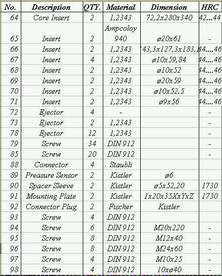 No. Description QTY. Material Dimension HRC
64 Core Insert 2 1,2343 72,2x280x340 42...4
Ampcoloy
65 Insert 2 940 ø20x61 -
66 Insert 2 1,2343 43,3x127,3x183,8 44....46
67 Insert 4 1,2343 ø10x59,84 44....46
68 Insert 2 1,2343 ø10x52 44....46
69 Insert 2 1,2343 ø20x59 44....46
70 Insert 2 1,2343 ø10x52.5 44....46
71 Insert 2 1,2343 ø9x56 44....46
72 Ejector 4 - -
73 Ejector 2 1,2343 -
78 Ejector 12 1,2343 -
79 Screw 34 DIN 912
85 Screw 20 DIN 912
88 Connector 4 Staubli
89 Preasure Sensor 2 Kistler ø6
90 Spacer Sleeve 2 Kistler ø5x52,20 1730
91 Mounting Plate 2 Kistler 1x20x35XxYxZ 1730
92 Connector Plug 2 Fischer Kistler
93 Screw 4 DIN 912
94 Screw 6 DIN 912 M20x220 -
95 Screw 8 DIN 912 M12x40 -
96 Screw 8 DIN 912 M24x60 -
97 Screw 4 DIN 912 M10x25 -
98 Screw 4 DIN 912 10xø40 -